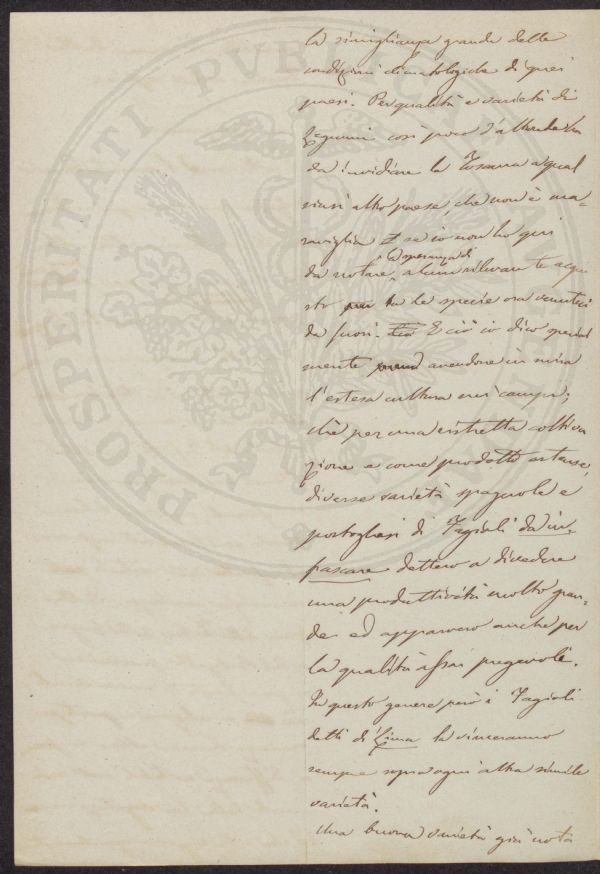 la simiglianza grande delle
condizioni climatologiche di quei
paesi. Per qualità e varietà di
Legumi così poco d'altronde ha
da invidiare la Toscana a qual
siasi altro paese, che non è ma-
raviglia se io non ho qui
la speranza di
da notare alcun rilevante acqui
sto tra le specie ora venuteci
da fuori. E ciò io dico special
mente avendone in mira
l'estesa cultura nei campi;
chè per una ristretta coltiva
zione e come prodotti
diverse varietà spagnole e
portoghesi di Fagioli da in-
frascare dettero a divedere
una produttività molto gran-
de ed apparvero anche per
la qualità assai pregevoli.
In questo genere però i Fagioli
detti di Lima la vinceranno
sempre sopra ogni altra simile
varietà.
Una buona varietà già nota
PROSPERITATI PVBLICAE AVGENDAE